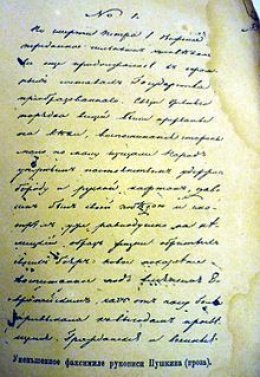 № 1.
По смерти Петра I движенiе,
переданное сильнымъ человѣкомъ,
все еще продолжалось въ огром-
ныхъ составахъ Государства
преобразованнаго. Связи древняго
порядка вещей были прерваны
на вѣки, воспоминанiя старины
мало по малу исчезали. Народъ
упорнымъ постоянствомъ удержавъ
бороду и русской кафтанъ, дово-
ленъ былъ своей побѣдою и смо-
трѣлъ уже равнодушно на нѣ-
мецкiй образъ жизни обритыхъ
своихъ Бояръ. новое поколѣнiе
воспитанное подъ влiянiемъ Е-
вропейскимъ, часъ отъ часу болѣе
привыкало къ выгодамъ просвѣ-
щенiя. Гражданскiе и Военные
Уменьшенное факсимиле рукописи Пушкина (проза).